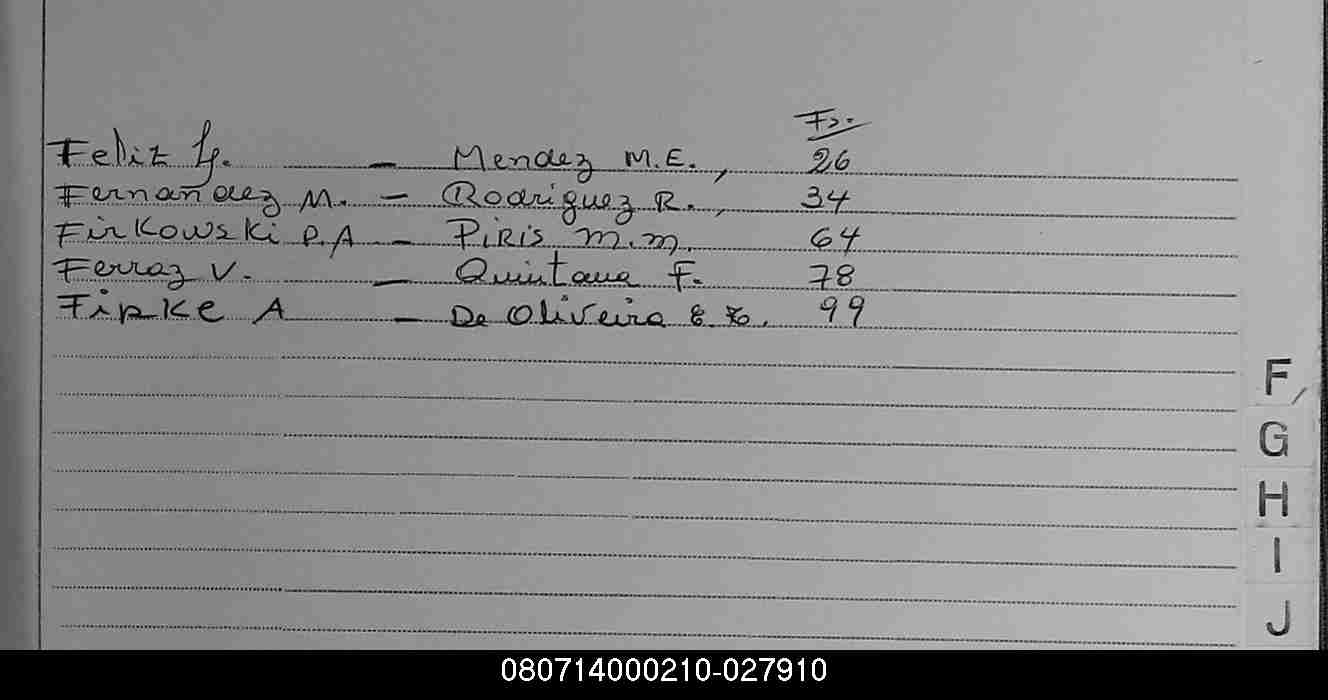 Fs.
Feliz G. - Mendez M.E., 26
Fernandez M. - Rodriguez R., 34
Firkowski P.A - Piris m.m. 64
Ferraz V. - Quintana F. 78
Fipke A - De Oliveira 99
F
G
H
I
J
080714000210-027910